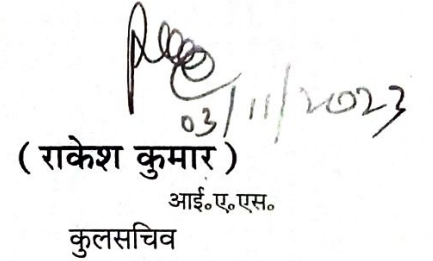 03/11/2023
( राकेश कुमार )
आई॰ए॰एस॰
कुलसचिव